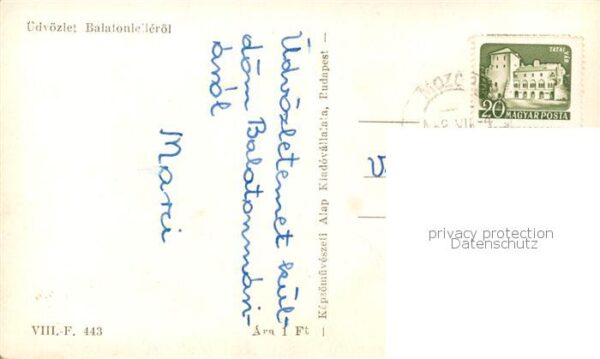 Üdvözlet Balatonlelléről
Üdvözletemet kül-
döm Balatonmári-
áról
Marci
Képzőművészeti Alap Kiadóvállalata, Budapest –
VIII.-F. 443
Ára 1 Ft
TATAI
VÁR
20 MAGYAR POSTA
MOZGÓ
privacy protection
Datenschutz